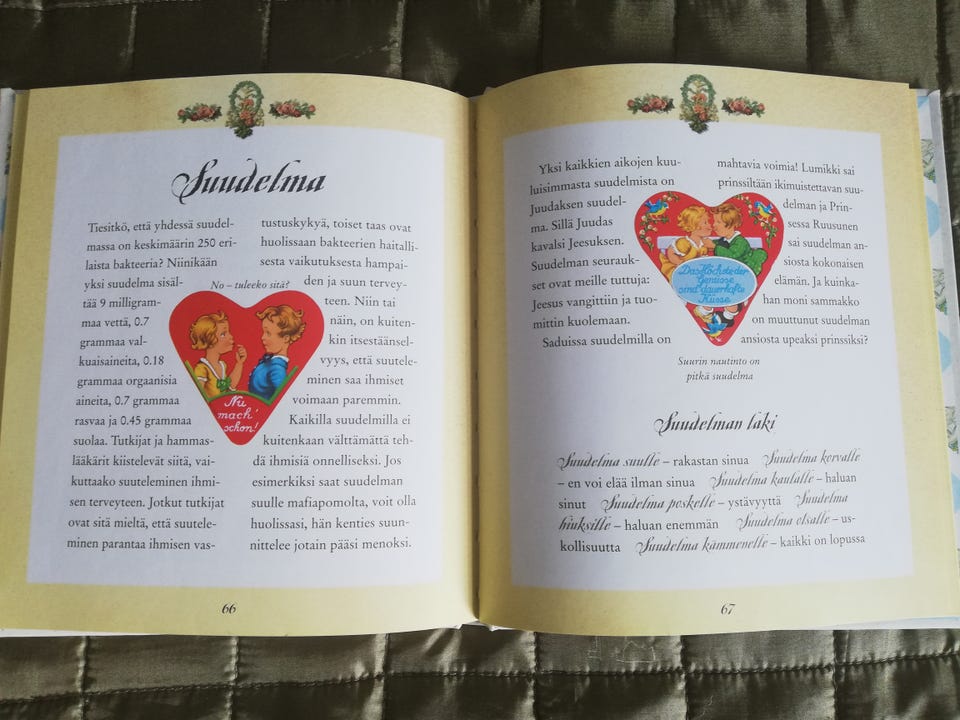 Suudelma
Tiesitkö, että yhdessä suudel-
massa on keskimäärin 250 eri-
laista bakteeria? Niinikään
yksi suudelma sisäl-
tää 9 milligram-
maa vettä, 0.7
grammaa val-
kuaisaineita, 0.18
grammaa orgaanisia
aineita, 0.7 grammaa
rasvaa ja 0.45 grammaa
suolaa. Tutkijat ja hammas-
lääkärit kiistelevät siitä, vai-
kuttaako suuteleminen ihmi-
sen terveyteen. Jotkut tutkijat
ovat sitä mieltä, että suutele-
minen parantaa ihmisen vas-
tustuskykyä, toiset taas ovat
huolissaan bakteerien haitalli-
sesta vaikutuksesta hampai-
den ja suun tervey-
teen. Niin tai
näin, on kuiten-
kin itsestäänsel-
vyys, että suutele-
minen saa ihmiset
voimaan paremmin.
Kaikilla suudelmilla ei
kuitenkaan välttämättä teh-
dä ihmisiä onnelliseksi. Jos
esimerkiksi saat suudelman
suulle mafiapomolta, voit olla
huolissasi, hän kenties suun-
nittelee jotain pääsi menoksi.
No – tuleeko sitä?
Nu
mach'
schon!
66
Yksi kaikkien aikojen kuu-
luisimmasta suudelmista on
Juudaksen suudel-
ma. Sillä Juudas
kavalsi Jeesuksen.
Suudelman seurauk-
set ovat meille tuttuja:
Jeesus vangittiin ja tuo-
mittiin kuolemaan.
Saduissa suudelmilla on
mahtavia voimia! Lumikki sai
prinssiltään ikimuistettavan suu-
delman ja Prin-
sessa Ruusunen
sai suudelman an-
siosta kokonaisen
elämän. Ja kuinka-
han moni sammakko
on muuttunut suudelman
ansiosta upeaksi prinssiksi?
Das Höchste der
Genüsse
sind dauerhafte
Küsse
Suurin nautinto on
pitkä suudelma
Suudelman laki
Suudelma suulle – rakastan sinua Suudelma korvalle
– en voi elää ilman sinua Suudelma kaulalle – haluan
sinut Suudelma poskelle – ystävyyttä Suudelma
hiuksille – haluan enemmän Suudelma otsalle – us-
kollisuutta Suudelma kämmenelle – kaikki on lopussa
67